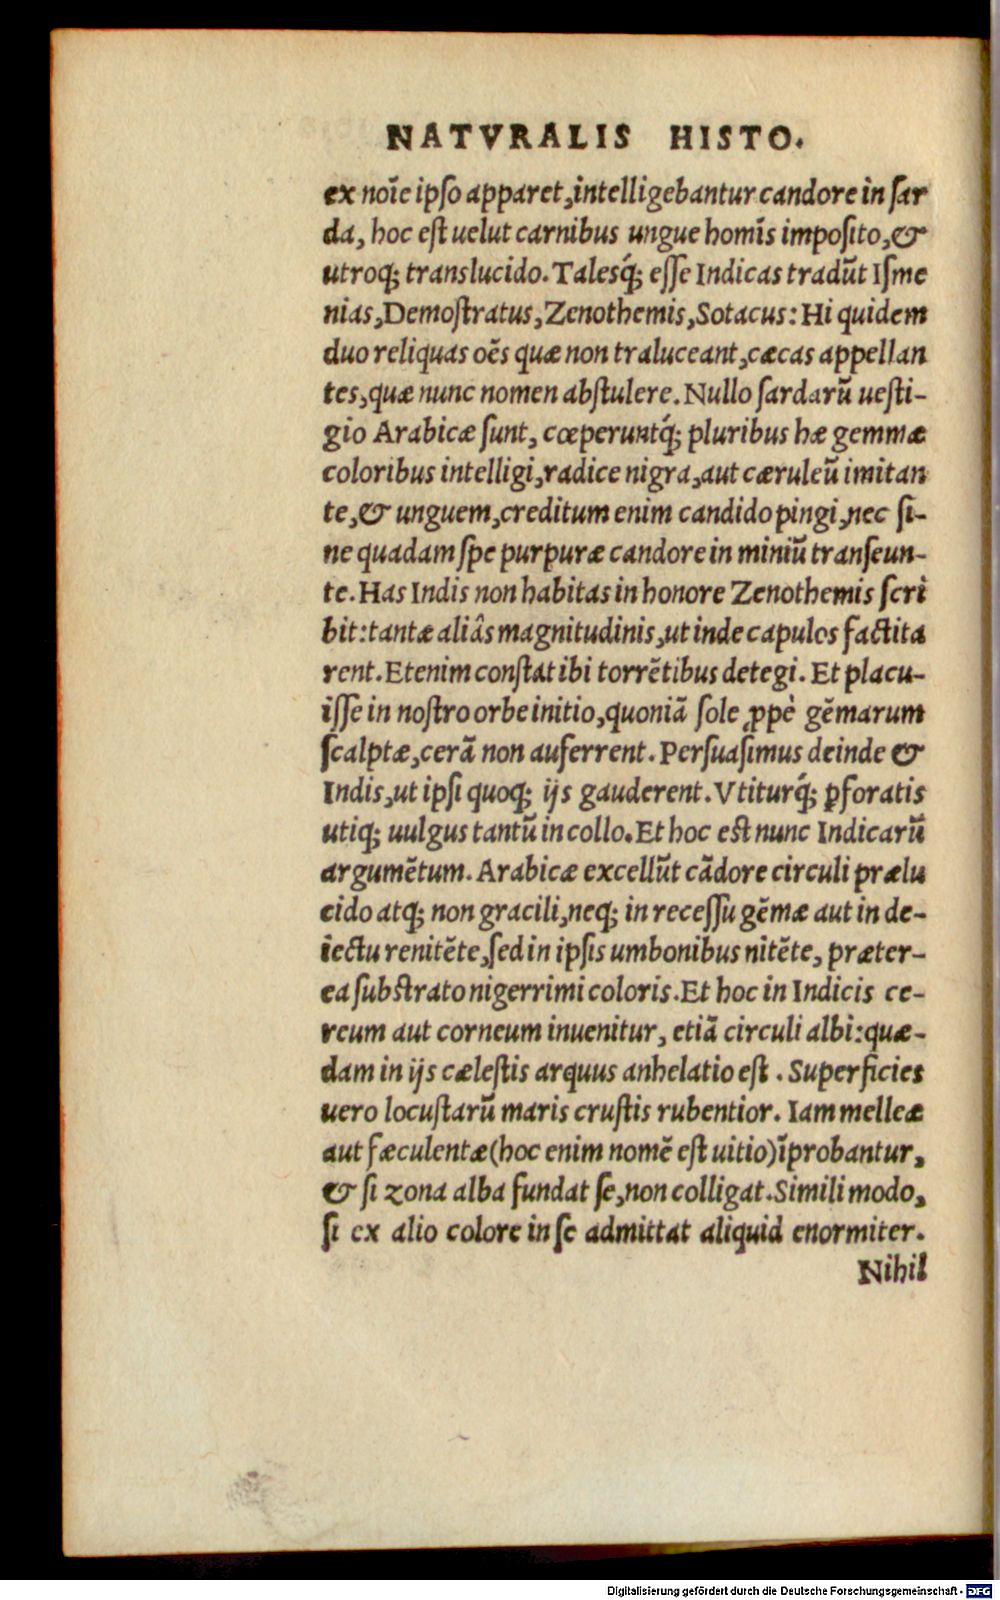 NATVRALIS HISTO.
ex noīe ipso apparet, intelligebantur candore in sar
da, hoc est uelut carnibus ungue homīs imposito, &
utroq; translucido. Talesq́; esse Indicas tradūt Isme
nias, Demostratus, Zenothemis, Sotacus: Hi quidem
duo reliquas oēs quæ non traluceant, cæcas appellan
tes, quæ nunc nomen abstulere. Nullo sardarū uesti-
gio Arabicæ sunt, cœperuntq́; pluribus hæ gemmæ
coloribus intelligi, radice nigra, aut cæruleū imitan
te, & unguem, creditum enim candido pingi, nec si-
ne quadam spe purpuræ candore in miniū transeun-
te. Has Indis non habitas in honore Zenothemis scri
bit: tantæ aliâs magnitudinis, ut inde capulos factita
rent. Etenim constat ibi torrētibus detegi. Et placu-
isse in nostro orbe initio, quoniā sole ꝓpè gēmarum
scalptæ, cerā non auferrent. Persuasimus deinde &
Indis, ut ipsi quoq; ijs gauderent. Vtiturq́; ꝑforatis
utiq; uulgus tantū in collo. Et hoc est nunc Indicarū
argumētum. Arabicæ excellūt cādore circuli prælu
cido atq; non gracili, neq; in recessu gēmæ aut in de-
iectu renitēte, sed in ipsis umbonibus nitēte, præter-
ea substrato nigerrimi coloris. Et hoc in Indicis ce-
reum aut corneum inuenitur, etiā circuli albi: quæ-
dam in ijs cælestis arquus anhelatio est. Superficies
uero locustarū maris crustis rubentior. Iam melleæ
aut fæculentæ (hoc enim nomē est uitio) īprobantur,
& si zona alba fundat se, non colligat. Simili modo,
si ex alio colore in se admittat aliquid enormiter.
Nihil
Digitalisierung gefördert durch die Deutsche Forschungsgemeinschaft - DFG